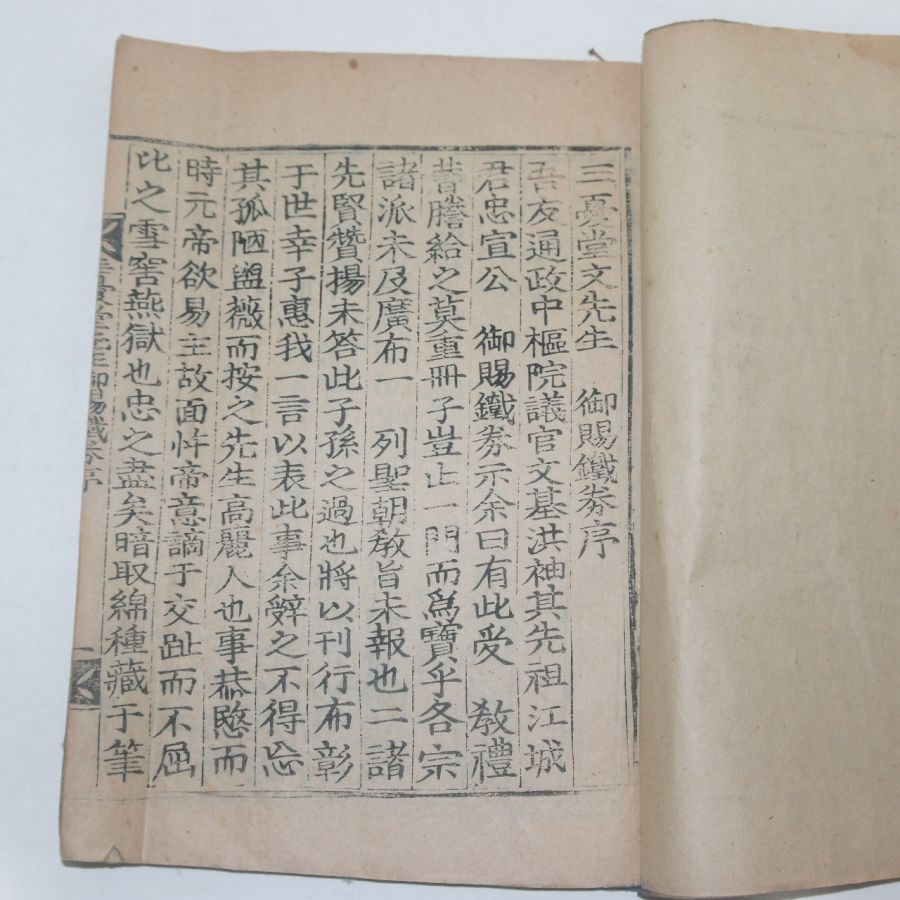 三憂堂文先生 御賜鐵券序
吾友通政中樞院議官文基洪袖其先祖江城
君忠宣公 御賜鐵券示余曰有此受 敎禮
曹謄給之莫重冊子豈止一門而爲寶乎各宗
諸派未及廣布一 列聖朝敎旨未報也二諸
先賢贊揚未答此子孫之過也將以刊行布彰
于世幸子惠我一言以表此事余辭之不得忘
其孤陋盥薇而按之先生高麗人也事恭愍而
時元帝欲易主故面忤帝意謫于交趾而不屈
比之雪窖燕獄也忠之盡矣暗取綿種藏于筆
三憂堂先生御賜鐵券序 一